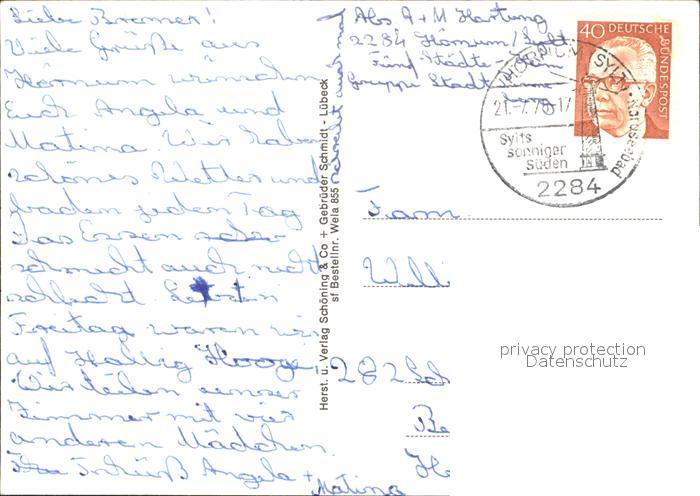 Liebe Bromer!
Viele Grüße aus
Hörnum wünschen
Euch Angela und
Matina. Wir haben
schönes Wetter und
baden jeden Tag
Das Essen
schmeckt auch nicht
schlecht. Letzten
Freitag waren wir
auf Hallig Hooge
Wir teilen unser
Zimmer mit vier
anderen Mädchen.
Angela +
Matina
Herst. u. Verlag Schöning & Co + Gebrüder Schmidt - Lübeck
sf Bestellnr. Wela 855
Abs A + M Hartung
2284 Hörnum/Sylt
Fünf Städte-Heim
Gruppe Stadt
40 DEUTSCHE
BUNDESPOST
HÖRNUM SYLT
Nordseebad
21.-7.75-17
Sylts
sonniger
Süden
2284
Fam.
Willi
282
Be
H
privacy protection
Datenschutz